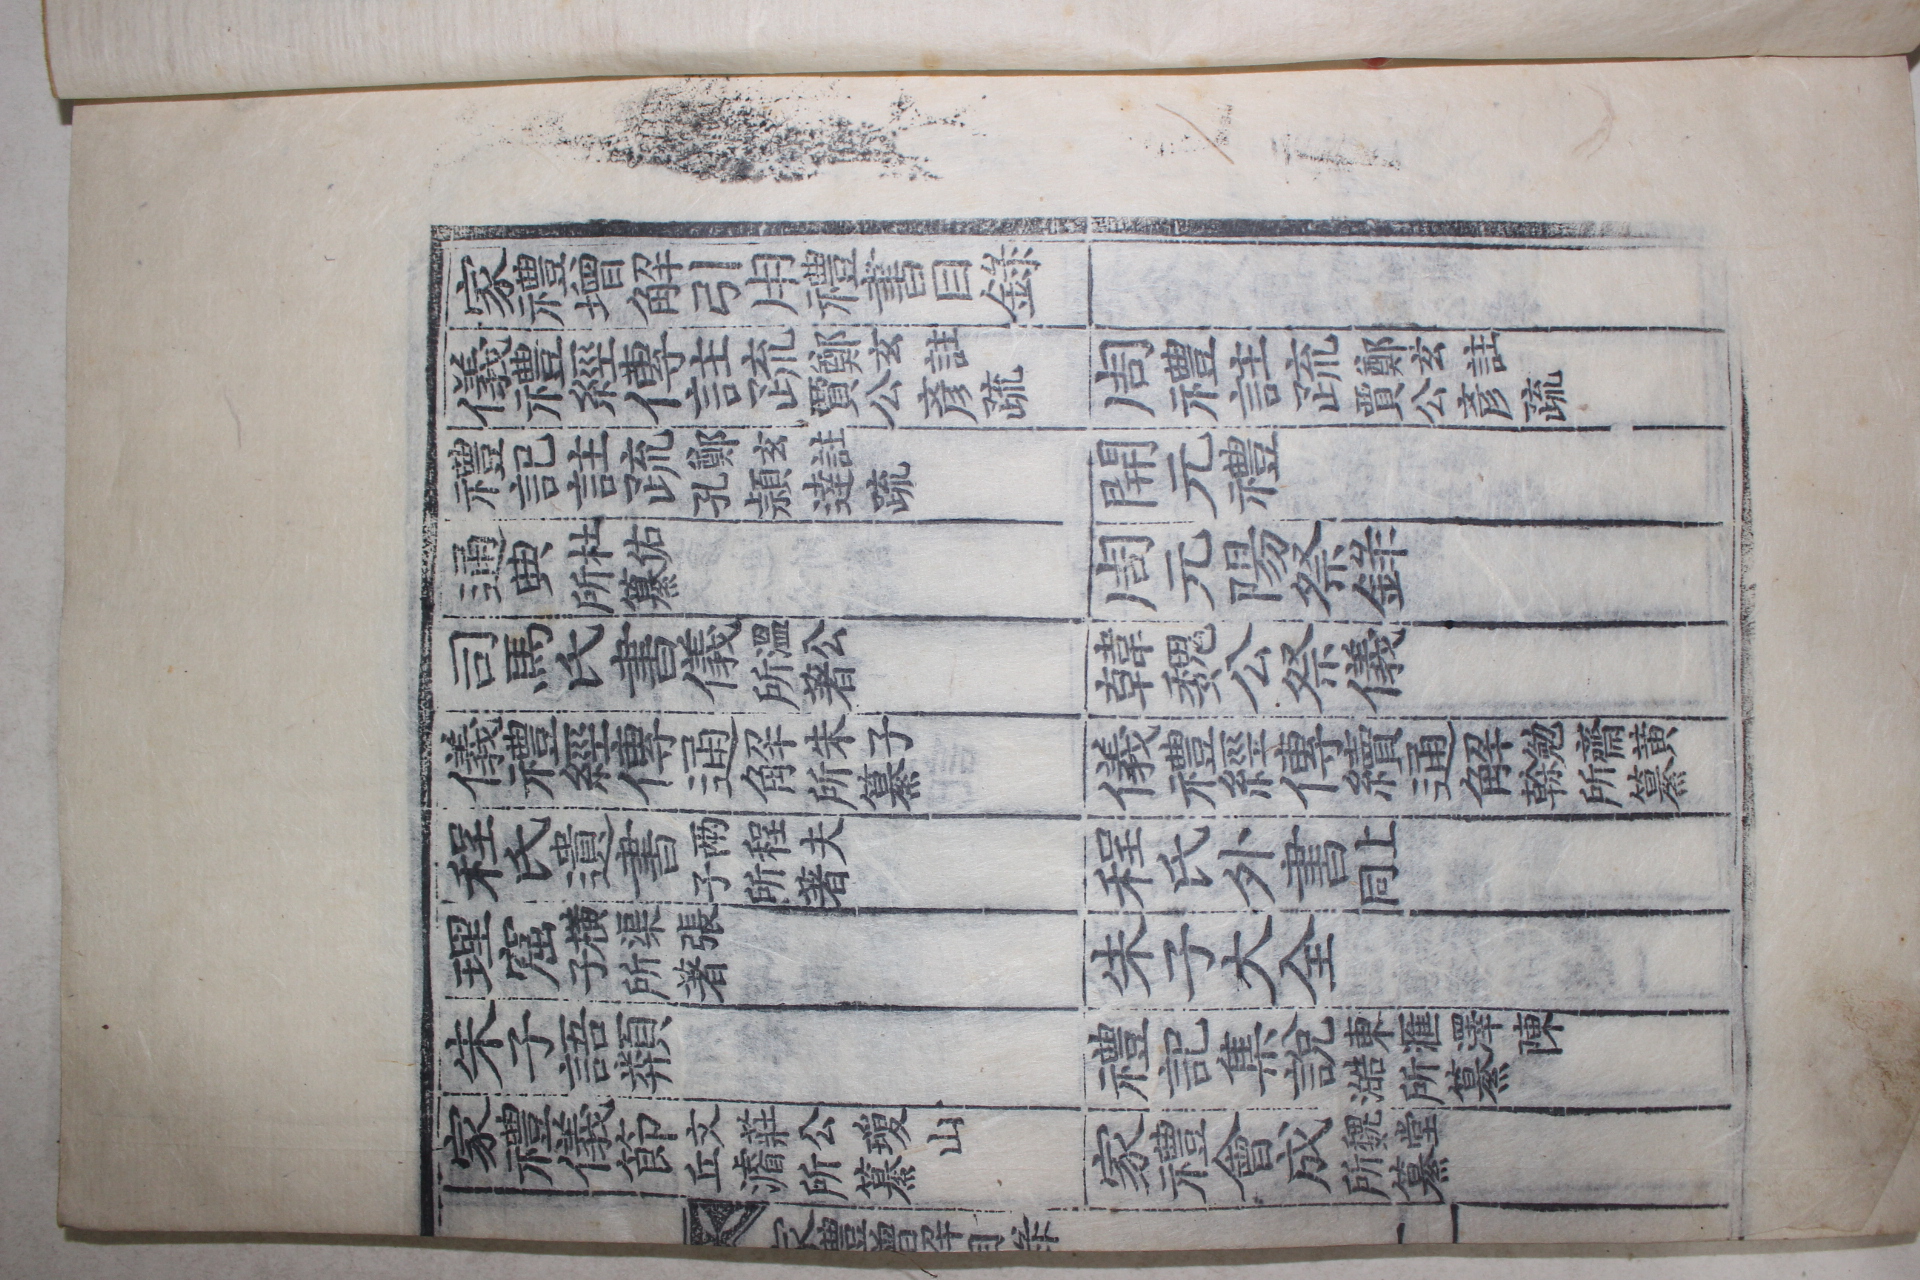 家禮增解引用禮書目錄
儀禮經傳註疏 鄭玄註 賈公彥疏
周禮註疏 鄭玄註 賈公彥疏
禮記註疏 鄭玄註 孔頴達疏
開元禮
通典 杜佑 所纂
周元陽祭錄
司馬氏書儀 溫公 所著
韓魏公祭儀
儀禮經傳通解 朱子 所纂
儀禮經傳續通解 勉齋黃 榦所纂
程氏遺書 兩程夫 子所著
程氏外書 上同
理窟 橫渠張 子所著
朱子大全
朱子語類
禮記集說 東滙澤陳 澔所纂
家禮儀節 文莊公瓊山 丘濬所纂
家禮會成 魏堂 所纂
家禮增解目錄 一